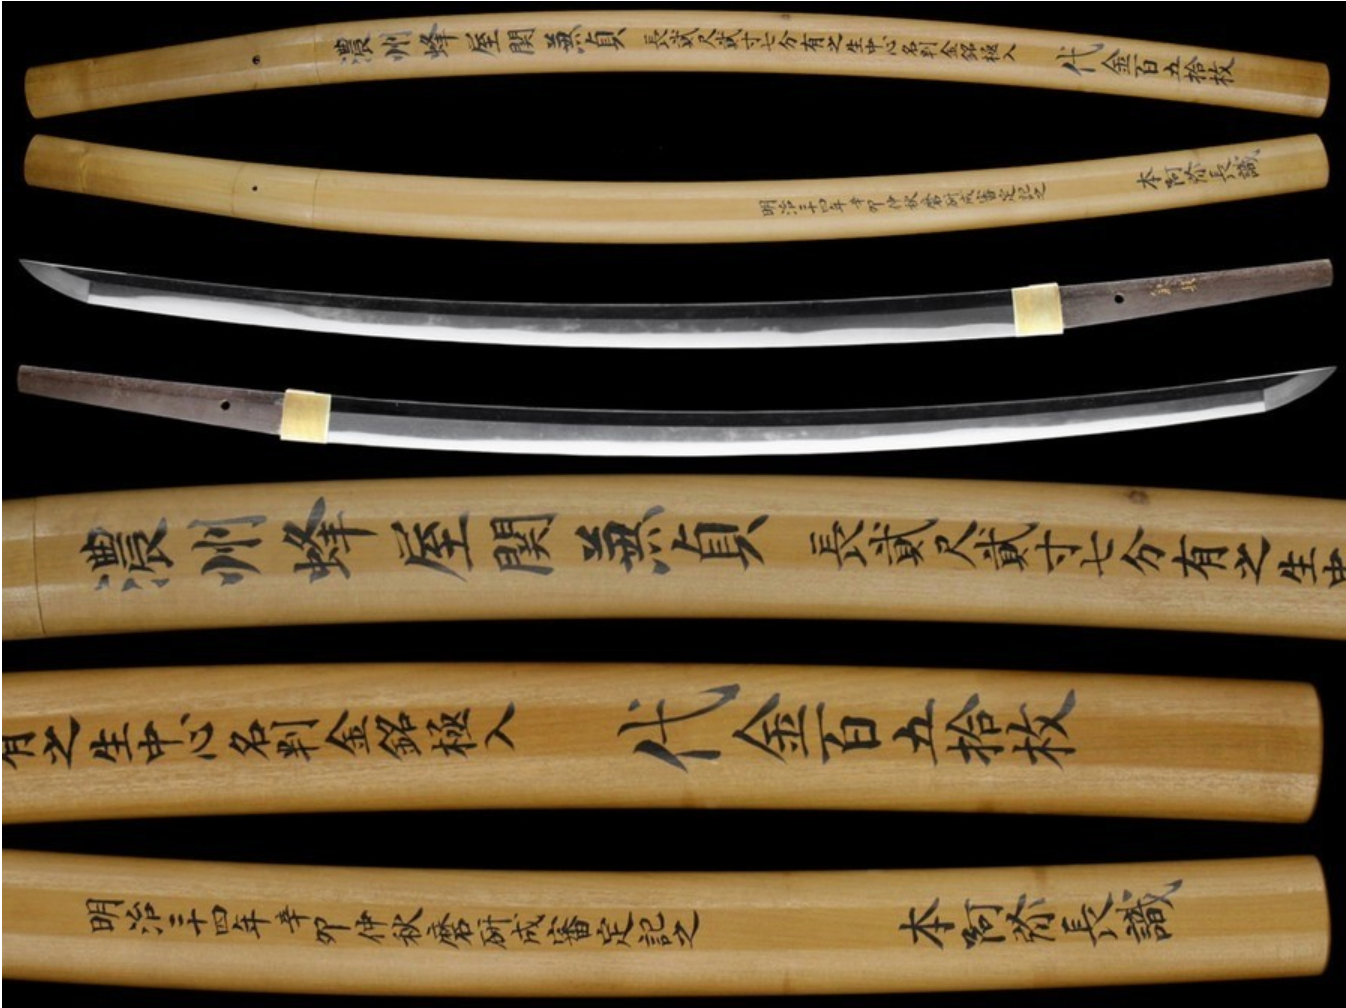 濃州蜂屋関兼貞 長貮尺貮寸七分有之生中心名判金銘極入 代金百五拾枚
明治二十四年辛卯仲秋磨研成審定記之 本阿弥長識
濃州蜂屋関兼貞 長貮尺貮寸七分有之生中
有之生中心名判金銘極入 代金百五拾枚
明治二十四年辛卯仲秋磨研成審定記之 本阿弥長識